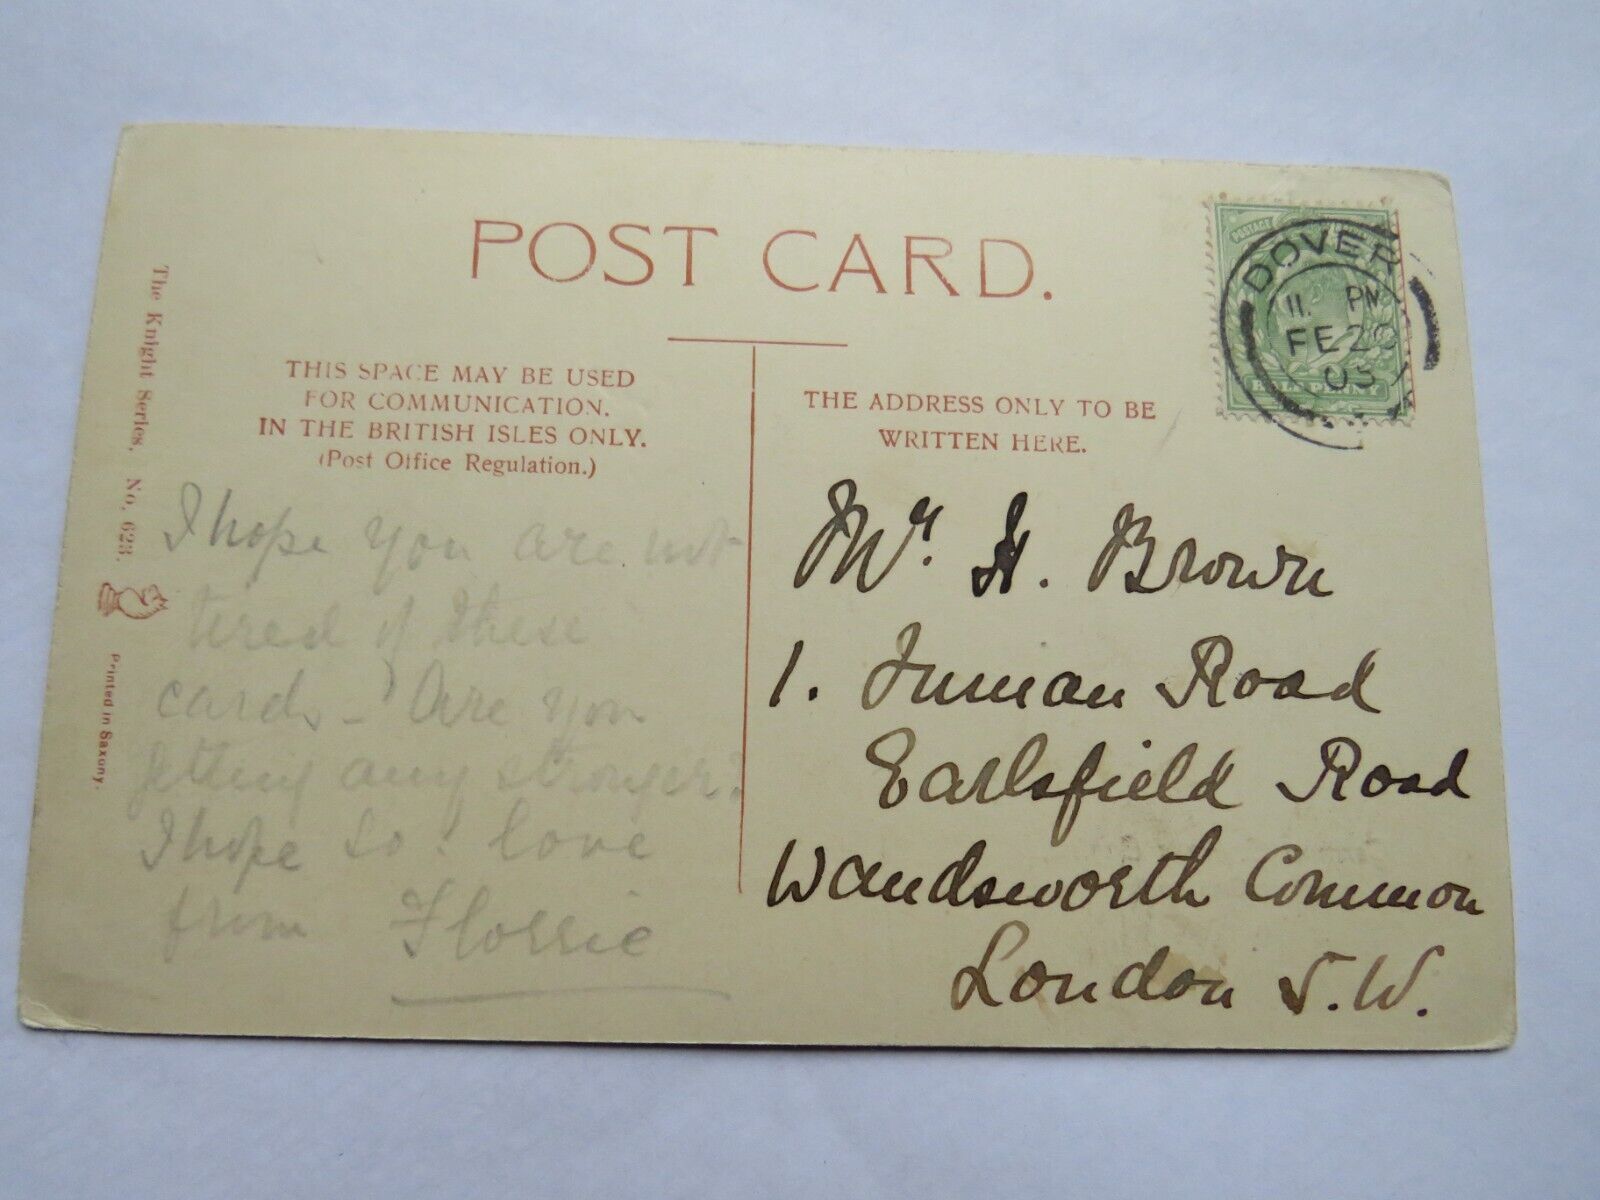 POST CARD.
THIS SPACE MAY BE USED
FOR COMMUNICATION.
IN THE BRITISH ISLES ONLY.
(Post Office Regulation.)
THE ADDRESS ONLY TO BE
WRITTEN HERE.
The Knight Series, No, 623.
Printed in Saxony.
I hope you are not
tired of these
cards – Are you
getting any stronger?
I hope so. love
from Florrie
POSTAGE
HALFPENNY
DOVER
11. PM
FE 20
Mr. H. Brown
1. Inman Road
Earlsfield Road
Wandsworth Common
London S.W.